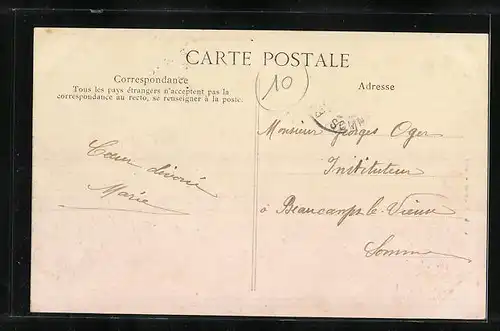 CARTE POSTALE
Correspondance
Tous les pays étrangers n'acceptent pas la
correspondance au recto, se renseigner à la poste.
Cœur dévoué
Marie
10
Adresse
SOM
Monsieur Georges Oger
Instituteur
à Beaucamps-le-Vieux
Somme